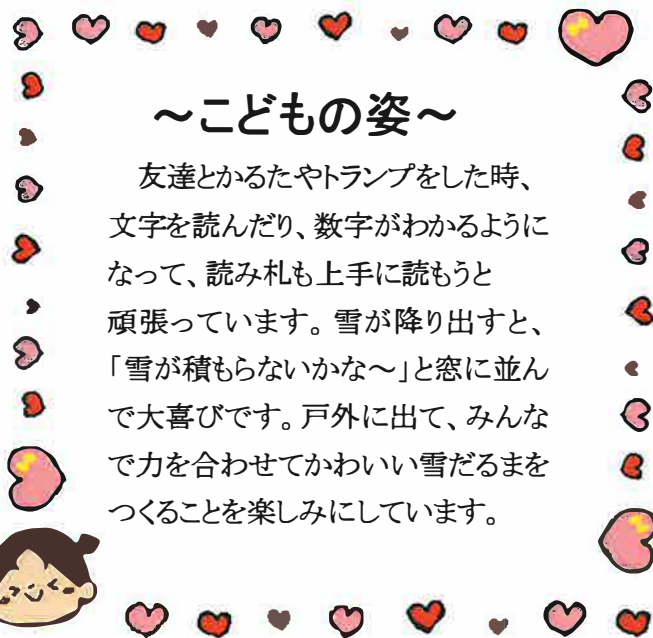 ～こどもの姿～
友達とかるたやトランプをした時、
文字を読んだり、数字がわかるように
なって、読み札も上手に読もうと
頑張っています。雪が降り出すと、
「雪が積もらないかな～」と窓に並ん
で大喜びです。戸外に出て、みんな
で力を合わせてかわいい雪だるまを
つくることを楽しみにしています。